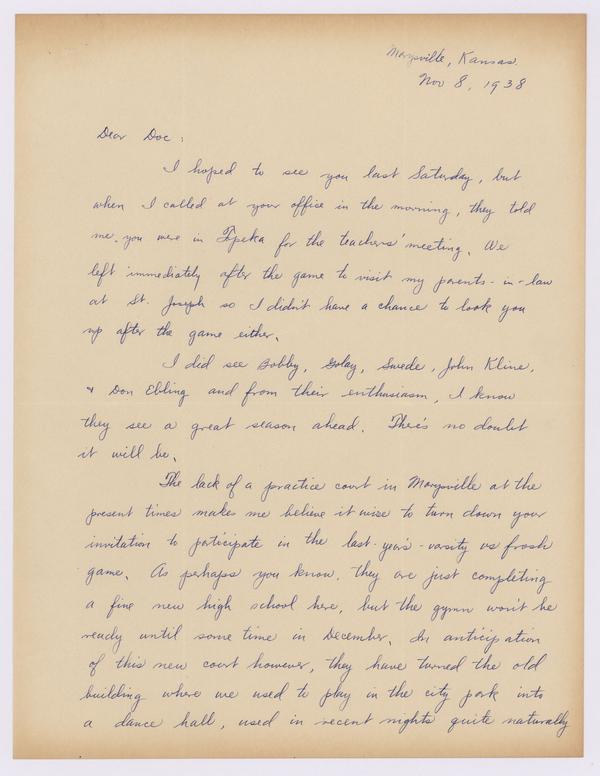 Marysville, Kansas.
Nov 8, 1938
Dear Doc:
I hoped to see you last Saturday, but
when I called at your office in the morning, they told
me you were in Topeka for the teachers' meeting. We
left immediately after the game to visit my parents-in-law
at St. Joseph so I didn't have a chance to look you
up after the game either.
I did see Bobby, Golay, Swede, John Kline,
& Don Ebling and from their enthusiasm, I know
they see a great season ahead. There's no doubt
it will be.
The lack of a practice court in Marysville at the
present times makes me believe it wise to turn down your
invitation to participate in the last-year's-varsity vs frosh
game. As perhaps you know, they are just completing
a fine new high school here, but the gymn won't be
ready until some time in December. In anticipation
of this new court however, they have turned the old
building where we used to play in the city park into
a dance hall, used in recent nights quite naturally